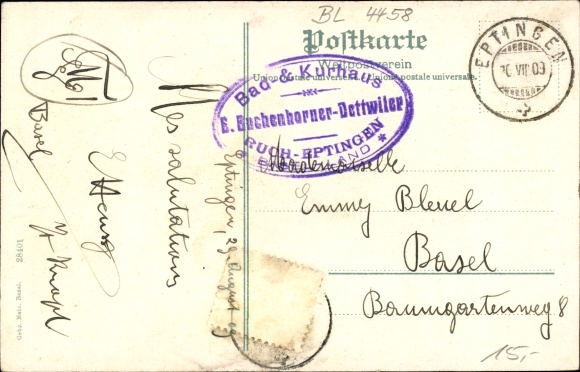 BL 4458
Postkarte
Weltpostverein
Union postale universelle. Unione postale universale.
EPTINGEN
VIII 09
Bad & Kurhaus
E. Buchenhorner-Dettwiler
RUCH-EPTINGEN
BASELLAND
Mademoiselle
Emmy Bleuel
Basel
Baumgartenweg 8
15,-
Eptingen, 29 August 09
Mes salutations
Basel
28401
Gebr. Metz, Basel.